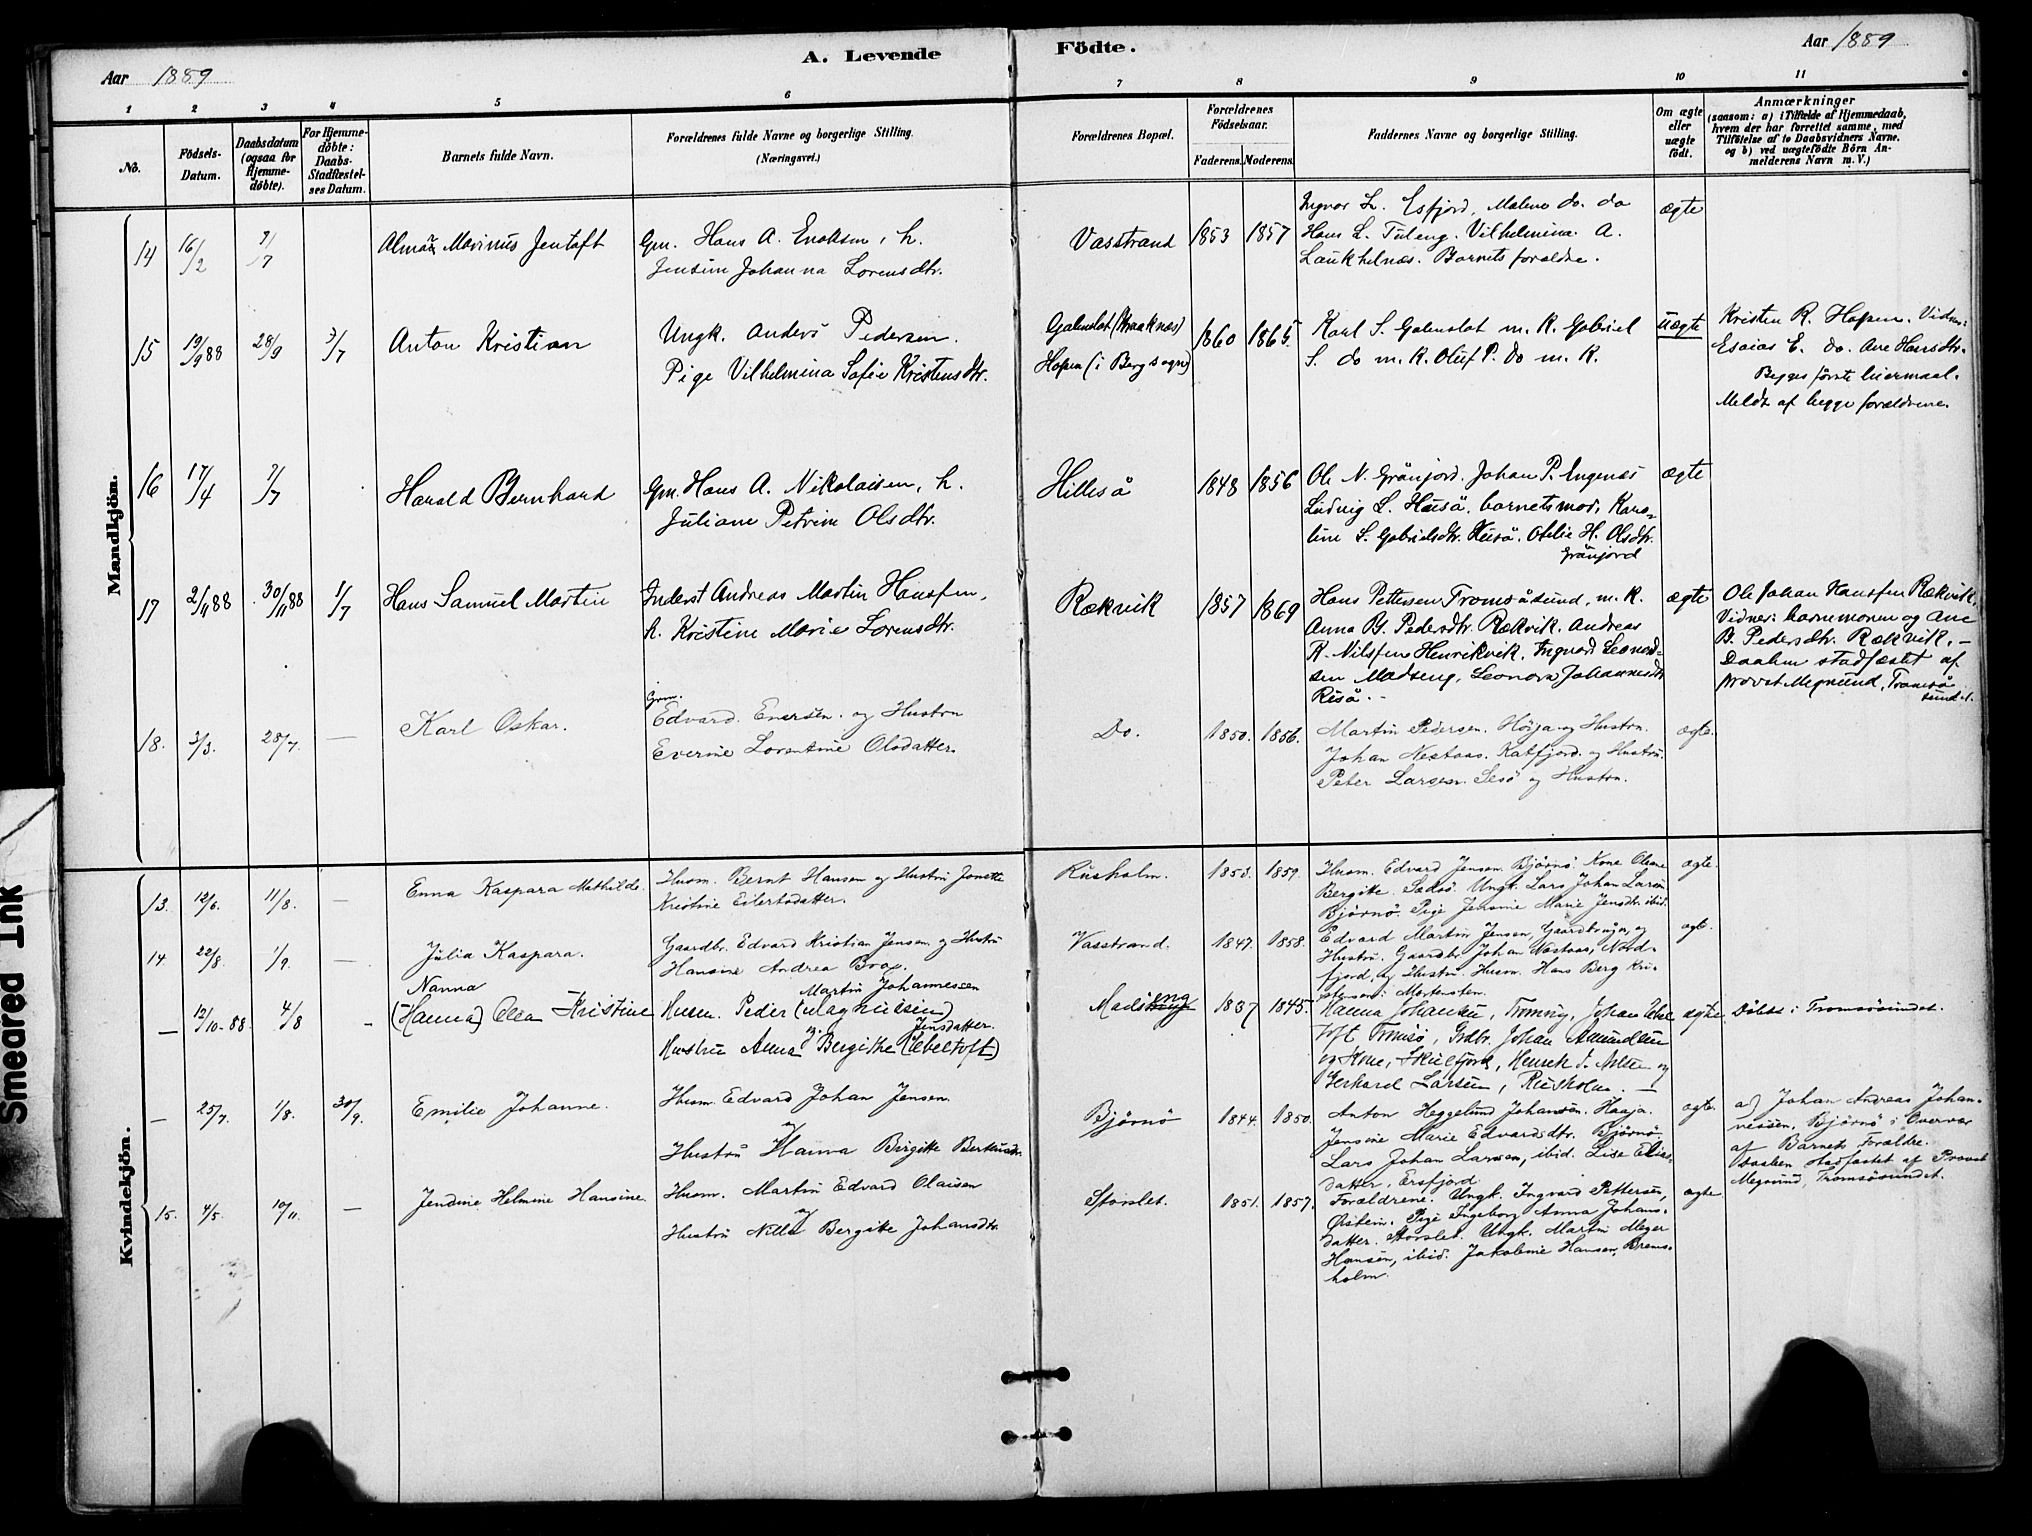 A. Levende Födte.
Aar 1889
Aar 1889
1 2 3 4 5 6 7 8 9 10 11
No.
Födsels-Datum.
Daabsdatum (ogsaa for Hjemme-döbte).
For Hjemme-döbte: Daabs-Stadfæstel-ses Datum.
Barnets fulde Navn.
Forældrenes fulde Navne og borgerlige Stilling.
(Næringsvei.)
Forældrenes Bopæl.
Forældrenes Födselsaar.
Faderens. Moderens.
Faddernes Navne og borgerlige Stilling.
Om ægte eller uægte födt.
Anmærkninger
(saasom: a) i Tilfælde af Hjemmedaab,
hvem der har forrettet samme, med
Tilföielse af to Daabsvidners Navne.
og b) ved uægtefödte Börn An-
melderens Navn m. V.)
Mandkjön.
14 16/2 7/7 Almar Marinus Jentoft
Gm. Hans A. Enoksen, h.
Jensine Johanna Lorensdtr.
Vasstrand 1853 1857
Ingvar L. Esfjord, Malene do. do
Hans L. Tuleng. Vilhelmina A.
Laukhelnæs. Barnets forældre.
ægte
15 19/9 88 28/9 7/7 Anton Kristian
Ungk. Anders Pedersen.
Pige Vilhelmina Sofie Kristensdtr.
Galnslat (Kraaknæs)
Hopen (i Berg sogn)
1860 1865
Karl S. Galnslat m. K. Gabriel
S. do m. K. Oluf P. Do m. K.
uægte
Kristen R. Hopen. Vidn:
Esaias E. do. Ane Hansdtr.
Begges første leiermaal.
Meldt af begge forældrene.
16 17/4 7/7 Harald Bernhard
Gm. Hans A. Nikolaisen, h.
Juliane Petrine Olsdtr.
Hillesö 1848 1856
Ole N. Grånjord. Johan P. Engenæs
Ludvig L. Husö, barnets mor, Karo-
line S. Gabrielsdtr. Husö. Otelie H. Olsdtr.
Grånjord
ægte
17 2/11 88 30/11 88 1/7 Hans Samuel Martin
Inderst Andreas Martin Hanssen,
h. Kristine Marie Lorensdtr.
Rækvik 1857 1869
Hans Pettersen Tromsösund, m. K.
Anna B. Pedersdtr. Rækvik. Andreas
K. Nilssen Henrikvik. Ingvard Leonard-
sen Madseng, Leonora Johannesdtr
Risö.
ægte
Ole Johan Hanssen Rækvik.
Vidner: barnemoren og Ane
B. Pedersdtr. Rækvik. —
Daaben stadfæstet af
provst Mejnund, Tromsö
sundet.
18. 3/3. 28/7. — Karl Oskar.
Grm.
Edvard Enersen. og Hustru
Everine Lorentine Olsdatter.
Do. 1850. 1856.
Martin Pedersen. Höja og Hustru.
Johan Nestaas. Katfjord. og Hustru.
Peter Larsen. Sesö og Hustru.
ægte.
Kvindekjön.
13. 12/6. 11/8. — Enna Kaspara Mathilde.
Husm. Bernt Hansen og Hustru Jonette
Kristine Eilertsdatter.
Risholm. 1853. 1859.
Husm. Edvard Jensen Bjørnö. Kone Oleane
Bergitte. Ungk. Lars Johan Larsen
Bjørnö. Pige Jensine Marie Jensdtr. ibid.
ægte.
14. 22/8. 1/9. — Julia Kaspara.
Gaardbr. Edvard Kristian Jensen og Hustru
Hansine Andrea Brox.
Vasstrand. 1847. 1858.
Edvard Martin Jensen, Gaardbruger og
Hustru. Gaardbr. Johan Nestaas, Nord-
fjord, og Hustru. Husm. Hans Berg Kri-
stensen: Mortensten.
ægte.
— 12/10-88. 4/8 - Nanna
(Hanna) Olea Kristine
Martin Johannessen
Husm. Peder (Magnussen)
Jensdatter.
Hustru Anna Bergitte (Ebeltoft)
Madseng 1837 1845.
Hanna Johansen, Tromvig, Johan Ebel
toft Tromsö, Grdbr. Johan Amundsen
og Kone, Skulsfjord, Henrik J. Nilsen og
Gerhard Larsen, Risholm. —
ægte. Döbt i Tromsösundet.
— 25/7. 1/8. 30/9. Emilie Johanne.
Husm. Edvard Johan Jensen.
Hustru Hanna Birgitte Berteusdtr.
Bjørnö 1844. 1850.
Anton Heggelund Johansen. Haaja.
Jensine Marie Edvardsdtr. Bjørnö
Lars Johan Larsen, ibid. Lise Elias-
datter, Ersfjord
ægte.
a) Johan Andreas Johan-
nessen, Bjørnö i Overvær
af Barnets Forældre.
Daaben stadfæstet af Provst
Mejnund, Tromsösundet.
15. 4/5. 10/11. — Jendine Helmine Hansine.
Husm. Martin Edvard Olaisen
Hustru Nilla Bergitte Johansdtr.
Storslet. 1851. 1857.
Forældrene. Ungk. Ingvard Pettersen,
Østein. Pige Ingeborg Anna Johans-
datter. Storslet. Ungk. Martin Meyer
Hansen, ibid. Jakobine Hansen, Brems-
holm.
ægte
Smeared Ink